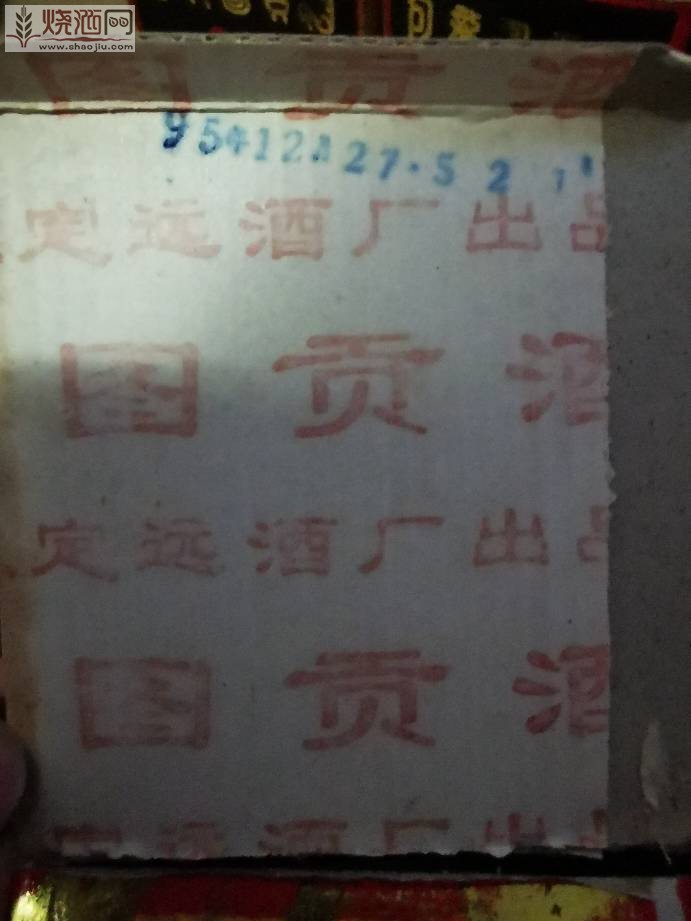 烧酒网
www.shaojiu.com
图 贡 酒
定远酒厂出品
图 贡 酒
定远酒厂出品
图 贡 酒
定远酒厂出品